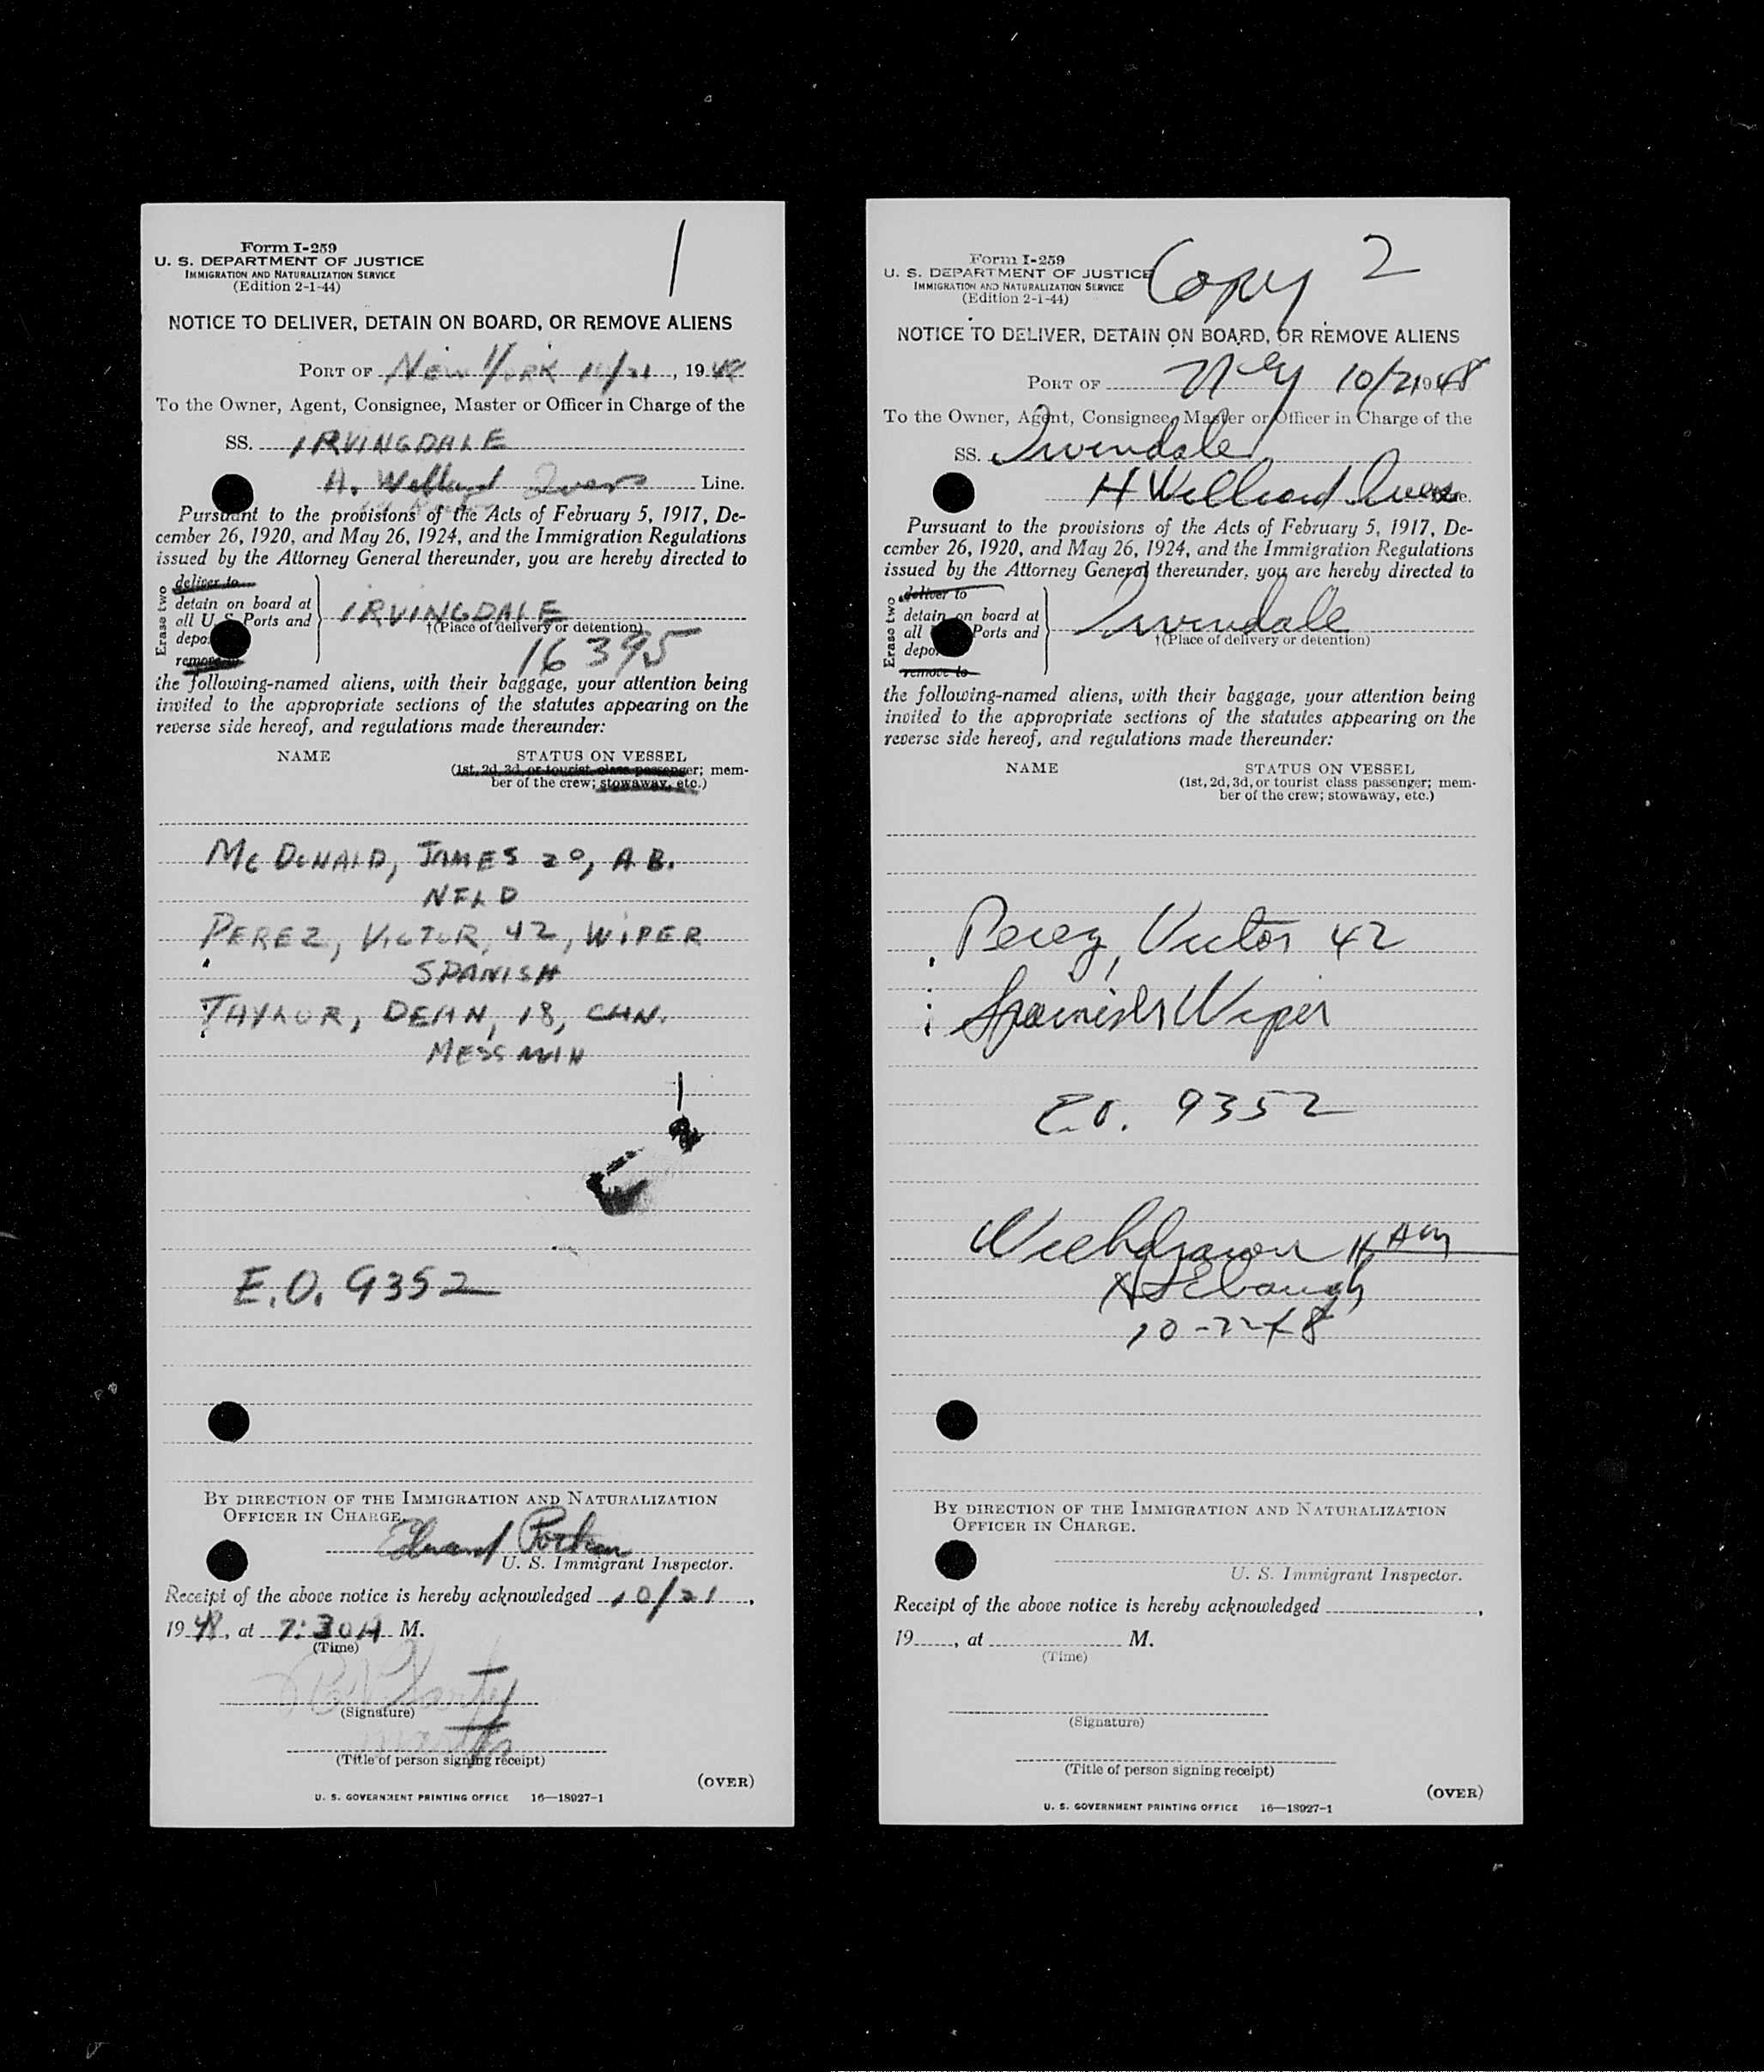 1
Form I-259
U. S. DEPARTMENT OF JUSTICE
IMMIGRATION AND NATURALIZATION SERVICE
(Edition 2-1-44)
NOTICE TO DELIVER, DETAIN ON BOARD, OR REMOVE ALIENS
PORT OF NEW YORK 10/21, 1948
To the Owner, Agent, Consignee, Master or Officer in Charge of the
SS. IRVINGDALE
Line.
Pursuant to the provisions of the Acts of February 5, 1917, De-
cember 26, 1920, and May 26, 1924, and the Immigration Regulations
issued by the Attorney General thereunder, you are hereby directed to
Erase two
deliver to
detain on board at
all U. S. Ports and
remove to
IRVINGDALE
†(Place of delivery or detention)
16395
the following-named aliens, with their baggage, your attention being
invited to the appropriate sections of the statutes appearing on the
reverse side hereof, and regulations made thereunder:
NAME STATUS ON VESSEL
(1st, 2d, 3d, or tourist class passenger; mem-
ber of the crew; stowaway, etc.)
McDONALD, JAMES 20, A.B.
NFLD
PEREZ, VICTOR, 42, WIPER
SPANISH
TAYLOR, DEAN, 18, CAN.
MESSMAN
E.O. 9352
BY DIRECTION OF THE IMMIGRATION AND NATURALIZATION
OFFICER IN CHARGE.
Edward
U. S. Immigrant Inspector.
Receipt of the above notice is hereby acknowledged 10/21,
1948, at 7:30 A M.
(Time)
(Signature)
(Title of person signing receipt)
(OVER)
U. S. GOVERNMENT PRINTING OFFICE 16—18927-1
Copy 2
Form I-259
U. S. DEPARTMENT OF JUSTICE
IMMIGRATION AND NATURALIZATION SERVICE
(Edition 2-1-44)
NOTICE TO DELIVER, DETAIN ON BOARD, OR REMOVE ALIENS
PORT OF NY 10/21 1948
To the Owner, Agent, Consignee, Master or Officer in Charge of the
SS. Irvendale
H Willard
Pursuant to the provisions of the Acts of February 5, 1917, De-
cember 26, 1920, and May 26, 1924, and the Immigration Regulations
issued by the Attorney General thereunder, you are hereby directed to
Erase two
deliver to
detain on board at
all Ports and
remove to
Irvendale
†(Place of delivery or detention)
the following-named aliens, with their baggage, your attention being
invited to the appropriate sections of the statutes appearing on the
reverse side hereof, and regulations made thereunder:
NAME STATUS ON VESSEL
(1st, 2d, 3d, or tourist class passenger; mem-
ber of the crew; stowaway, etc.)
Perez, Victor 42
Spanish Wiper
E.O. 9352
Withdrawn
10-22-48
BY DIRECTION OF THE IMMIGRATION AND NATURALIZATION
OFFICER IN CHARGE.
U. S. Immigrant Inspector.
Receipt of the above notice is hereby acknowledged ,
19 , at M.
(Time)
(Signature)
(Title of person signing receipt)
(OVER)
U. S. GOVERNMENT PRINTING OFFICE 16—18927-1